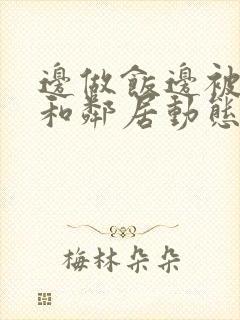 邊做飯邊被
和鄰居動態
梅林朵朵